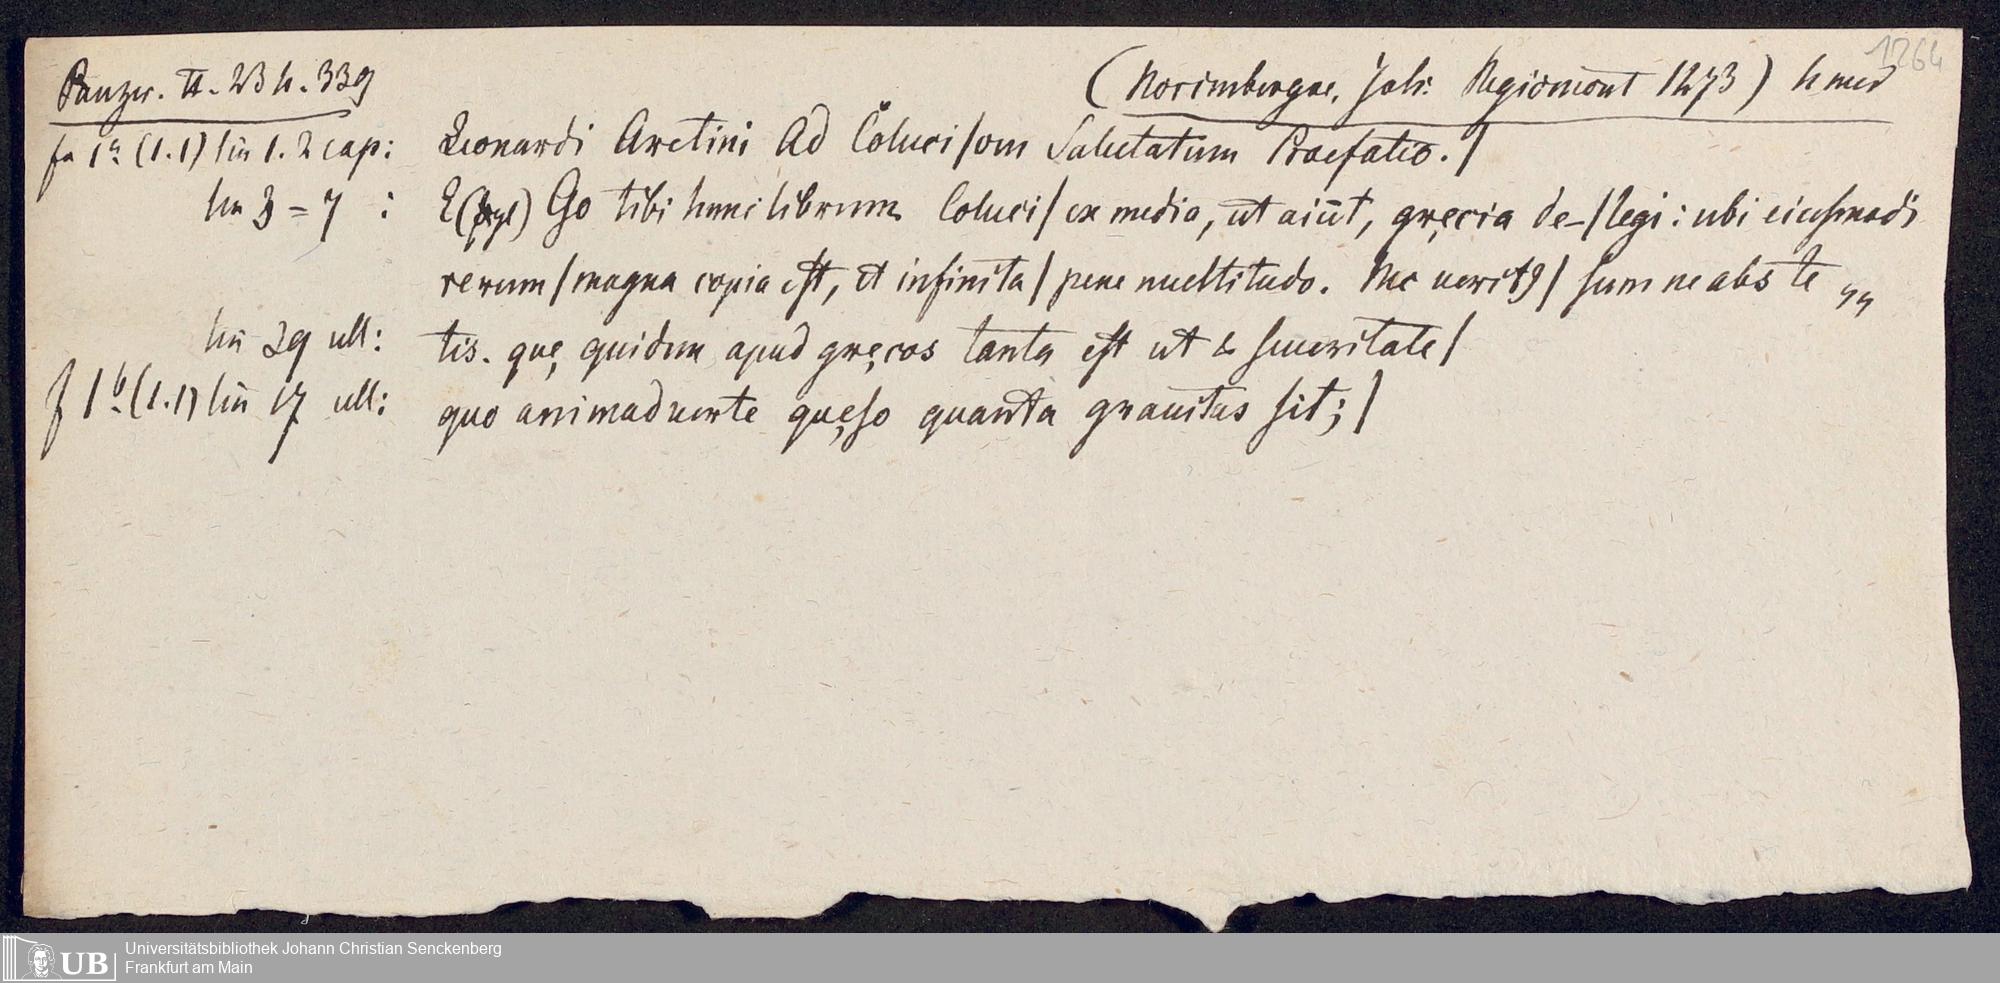 1264
Panzer. II. 234. 339 (Norimbergae, Joh: Regiomont 1473) 4 med
fo 1a (1.1) lin 1. 2 cap: Leonardi Aretini Ad Coluci/om Salutatum Praefatio./
lin 3 = 7 : E () Go tibi hunc librum Coluci/ ex media, ut aiūt, gręcia de-/legi: ubi eiusmodi
rerum/magna copia est, et infinita/pene multitudo. Nec uerit9/ sum ne abs te „
lin 29 ult: tis. quę quidem apud gręcos tanta est ut & seueritate/
f 1b (1.1) lin 17 ult: quo animaduerte quęso quanta grauitas sit;/
UB Universitätsbibliothek Johann Christian Senckenberg
Frankfurt am Main